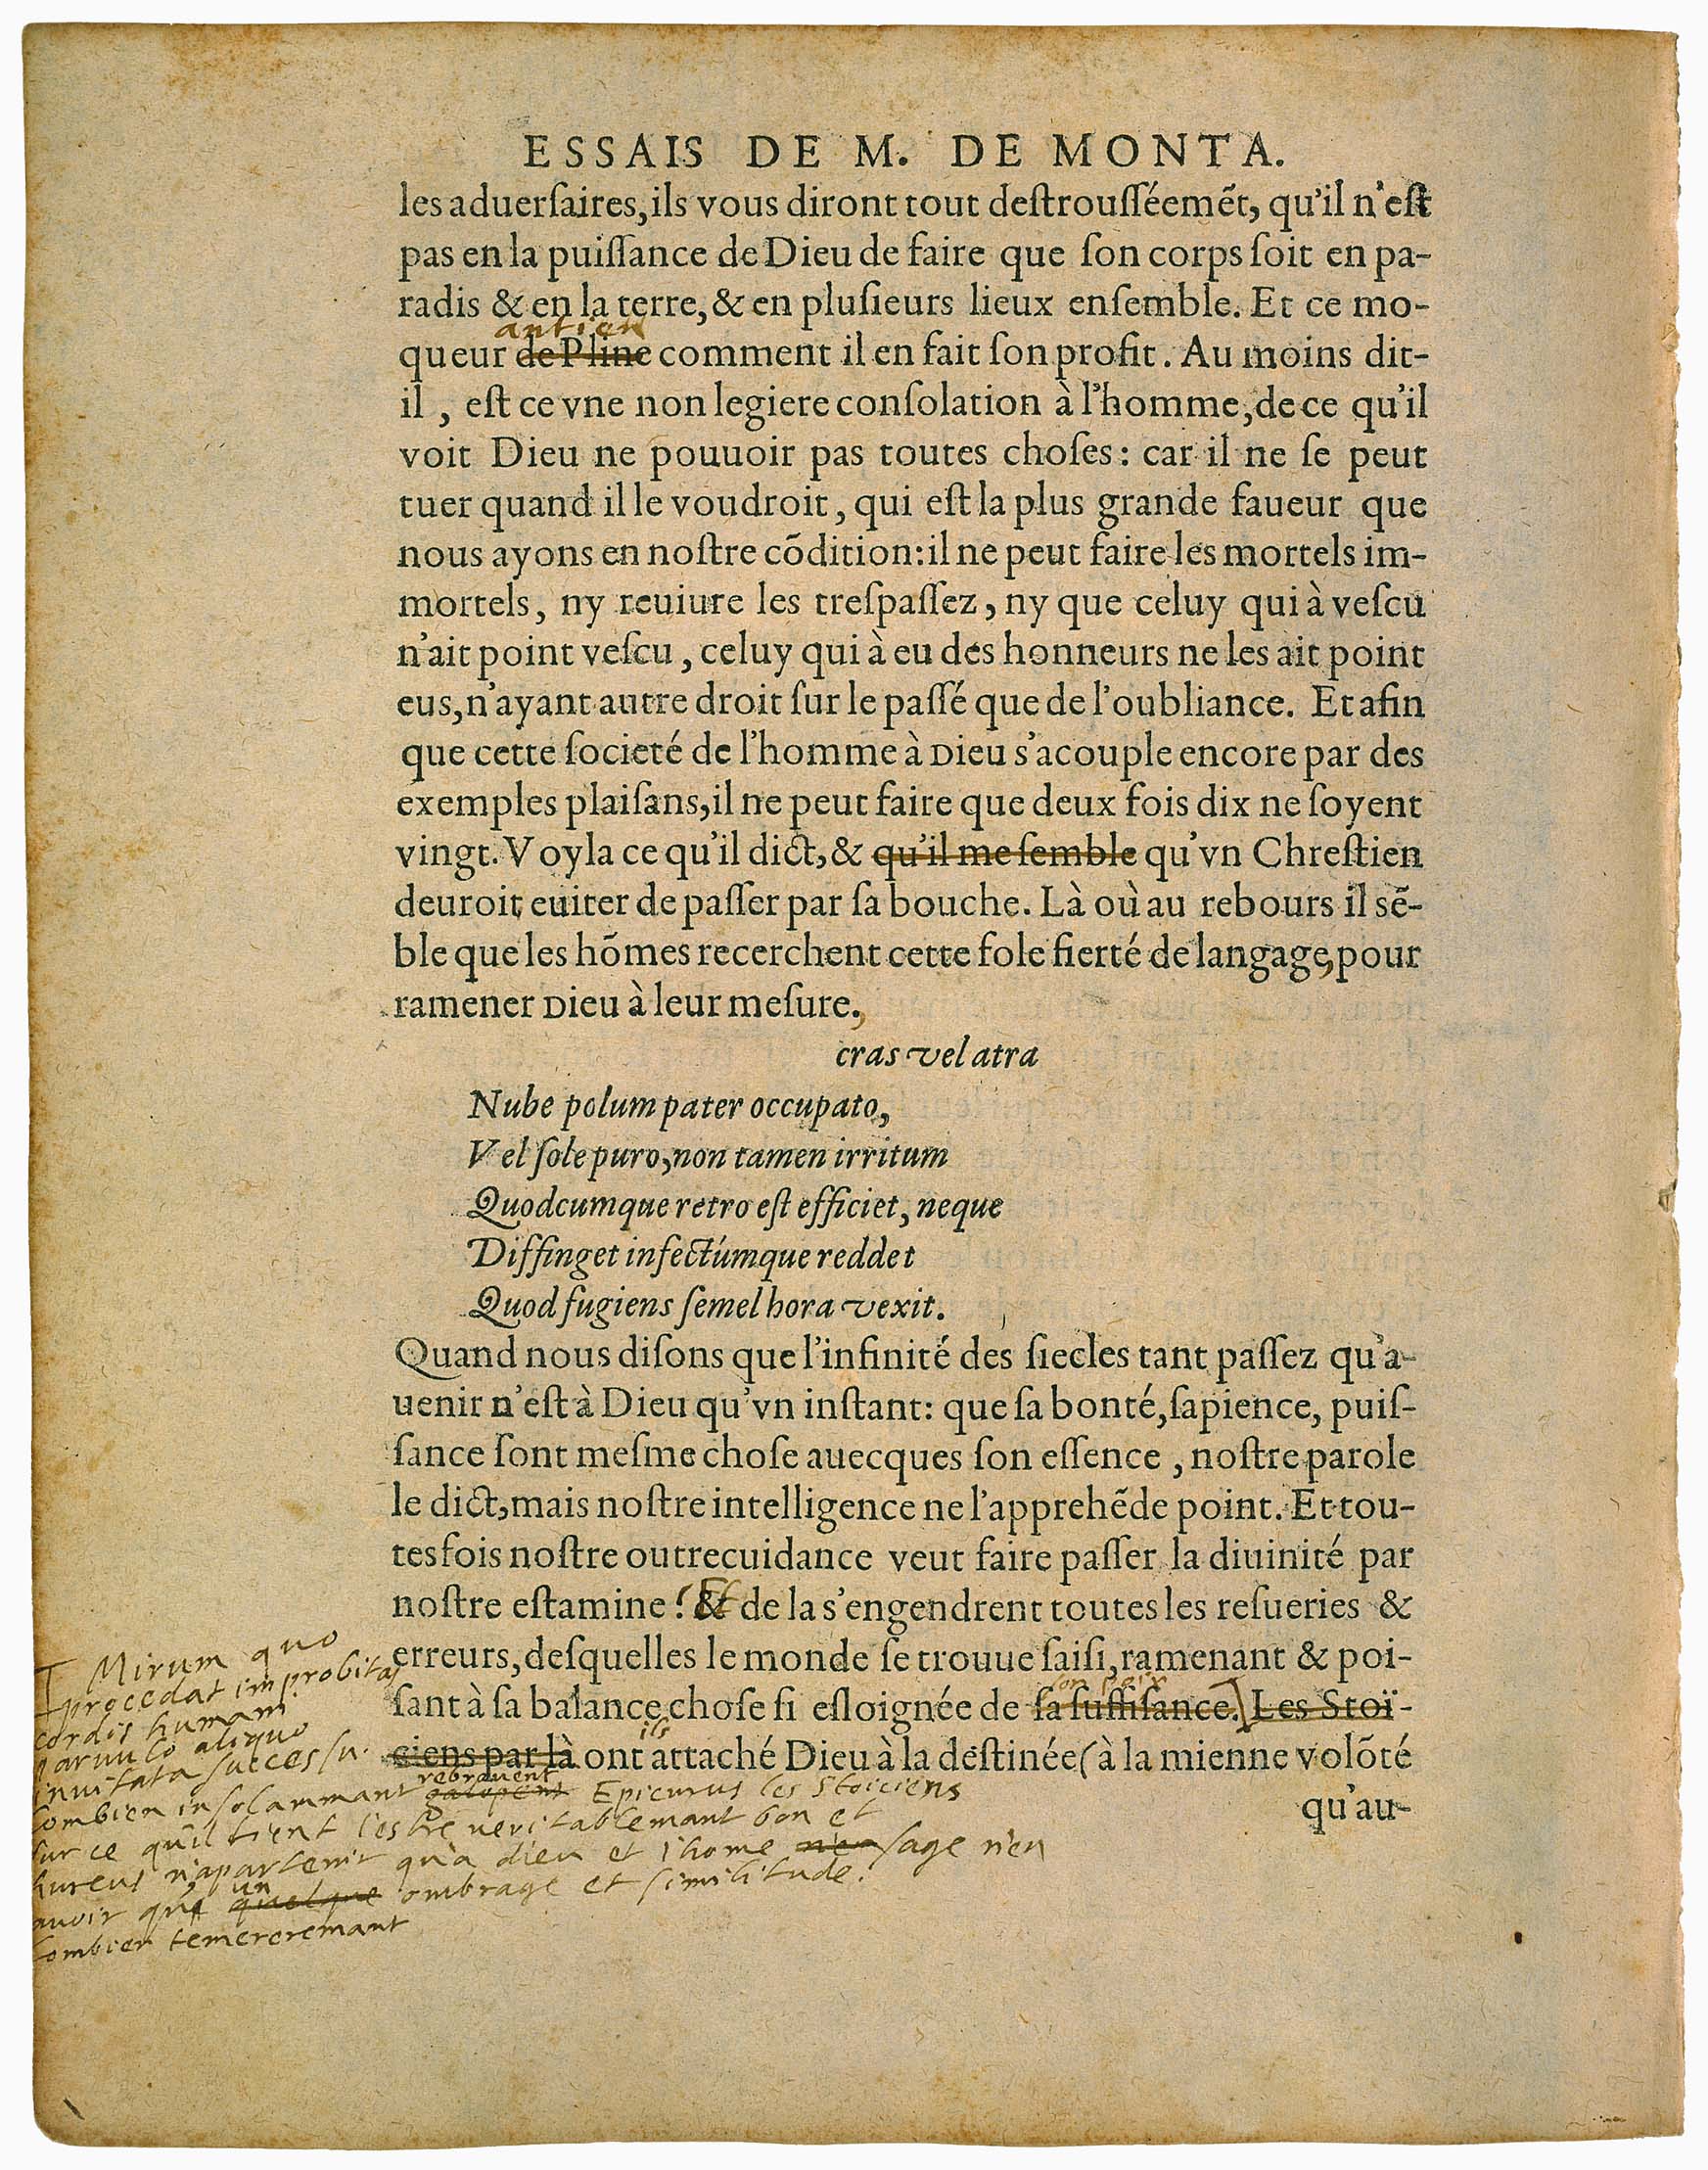 ESSAIS DE M. DE MONTA.
les aduerſaires, ils vous diront tout deſtrouſſéemẽt, qu'il n'eſt
pas en la puiſſance de Dieu de faire que ſon corps ſoit en pa-
radis & en la terre, & en pluſieurs lieux enſemble. Et ce mo-
antien
queur de Pline comment il en fait ſon profit. Au moins dit-
il, eſt ce vne non legiere conſolation à l'homme, de ce qu'il
voit Dieu ne pouuoir pas toutes choſes: car il ne ſe peut
tuer quand il le voudroit, qui eſt la plus grande faueur que
nous ayons en noſtre cõdition: il ne peut faire les mortels im-
mortels, ny reuiure les treſpaſſez, ny que celuy qui à veſcu
n'ait point veſcu, celuy qui à eu des honneurs ne les ait point
eus, n'ayant autre droit ſur le paſſé que de l'oubliance. Et afin
que cette ſocieté de l'homme à Dieu s'acouple encore par des
exemples plaiſans, il ne peut faire que deux fois dix ne ſoyent
vingt. Voyla ce qu'il dict, & qu'il me ſemble qu'vn Chreſtien
deuroit euiter de paſſer par ſa bouche. Là où au rebours il sẽ-
ble que les hõmes recerchent cette fole fierté de langage, pour
ramener Dieu à leur meſure.
cras vel atra
Nube polum pater occupato,
Vel ſole puro, non tamen irritum
Quodcumque retro eſt efficiet, neque
Diffinget infectúmque reddet
Quod fugiens ſemel hora vexit.
Quand nous diſons que l'infinité des ſiecles tant paſſez qu'a-
uenir n'eſt à Dieu qu'vn inſtant: que ſa bonté, ſapience, puiſ-
ſance ſont meſme choſe auecques ſon eſſence, noſtre parole
le dict, mais noſtre intelligence ne l'apprehẽde point. Et tou-
tesfois noſtre outrecuidance veut faire paſſer la diuinité par
noſtre eſtamine: Et & de la s'engendrent toutes les reſueries &
erreurs, deſquelles le monde ſe trouue ſaiſi, ramenant & poi-
son poix
ſant à ſa balance choſe ſi eſloignée de ſa ſuffiſance. Les Stoï-
ils
ciens par là ont attaché Dieu à la deſtinée (à la mienne volõté
qu'au-
Mirum quo
procedat improbitas
cordis humani
paruulo aliquo
inuitata successu.
Combien insolammant rebrouent galopent Epicurus les Stoiciens
sur ce qu'il tient l'estre veritablemant bon et
hureus n'apartenir qu'a dieu et l'home n'en sage n'en
auoir qu'un quelque ombrage et similitude.
Combien temereremant